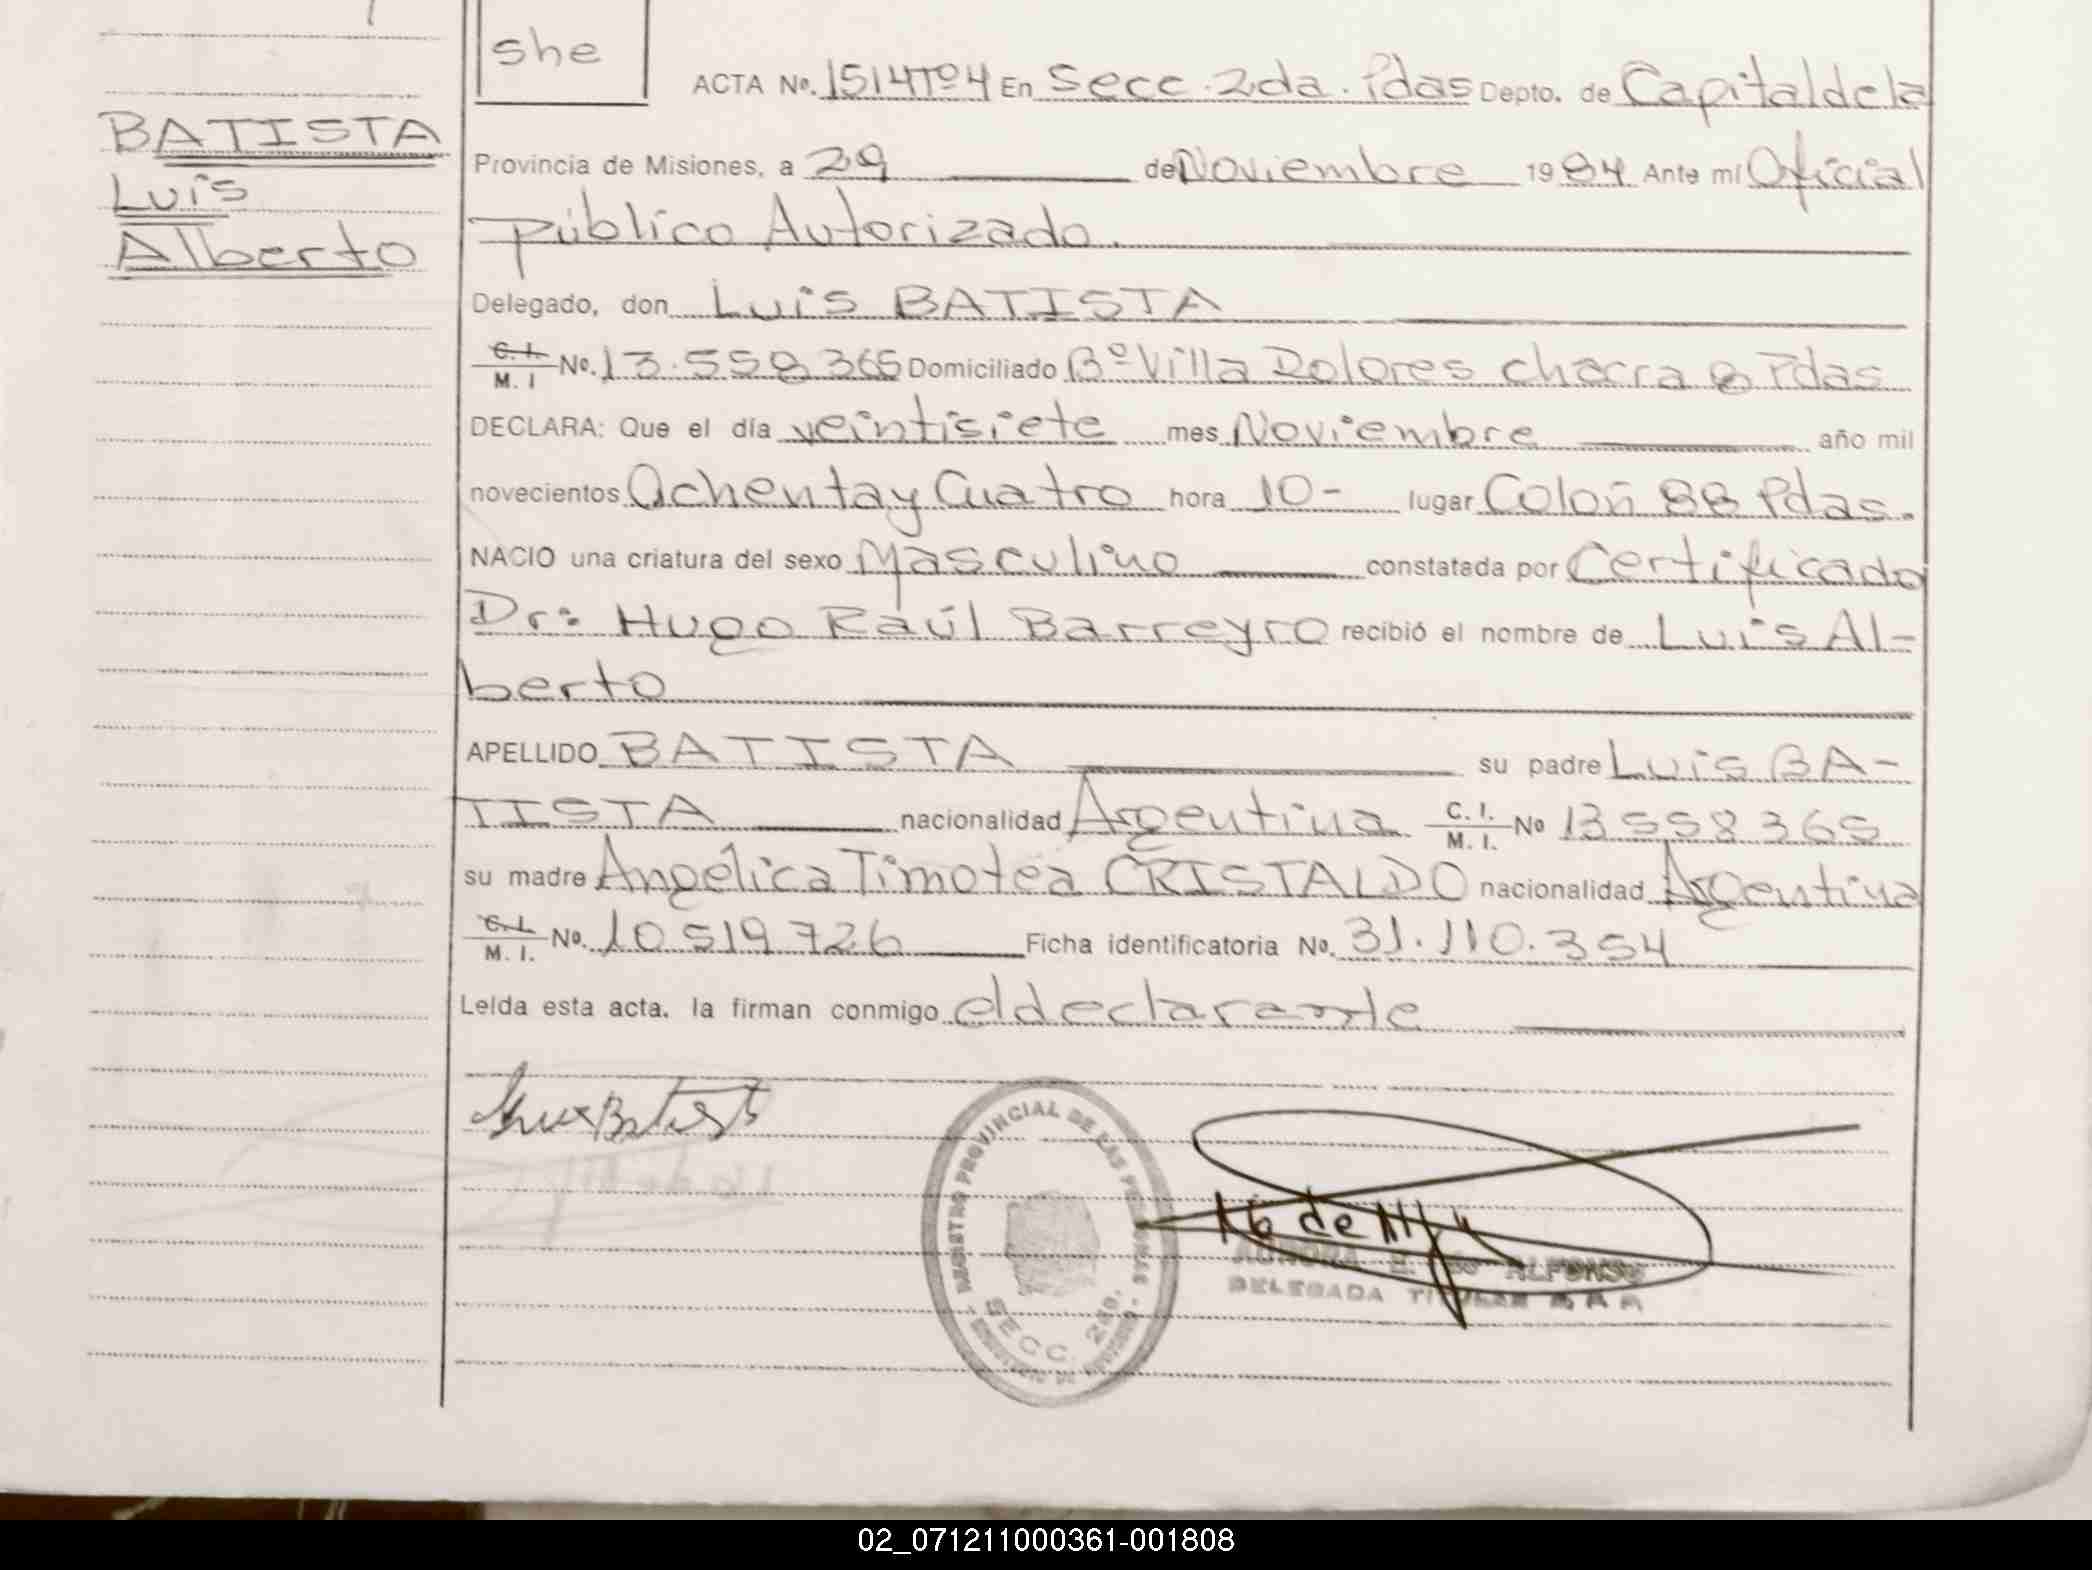 she
ACTA No. 1514 Tº 4 En Secc. 2da. Pdas Depto. de Capital de la
BATISTA
Luis
Alberto
Provincia de Misiones, a 29 de Noviembre 1984 Ante mí Oficial
Público Autorizado.
Delegado, don Luis BATISTA
C. I. / M. I No. 13.558365 Domiciliado Bº Villa Dolores chacra 8 Pdas
DECLARA: Que el día veintisiete mes Noviembre año mil
novecientos Ochenta y Cuatro hora 10- lugar Colón 88 Pdas.
NACIO una criatura del sexo Masculino constatada por Certificado
Dr: Hugo Raúl Barreyro recibió el nombre de Luis Al-
berto
APELLIDO BATISTA su padre Luis BA-
TISTA nacionalidad Argentina C. I. / M. I. No 13558365
su madre Angélica Timotea CRISTALDO nacionalidad Argentina
C. I. / M. I. No. 10519726 Ficha identificatoria No. 31.110.354
Leída esta acta. la firman conmigo el declarante
Luis Batista
REGISTRO PROVINCIAL DE LAS PERSONAS
SECC. 2da.
ALFONSO
DELEGADA TITULAR
02_071211000361-001808